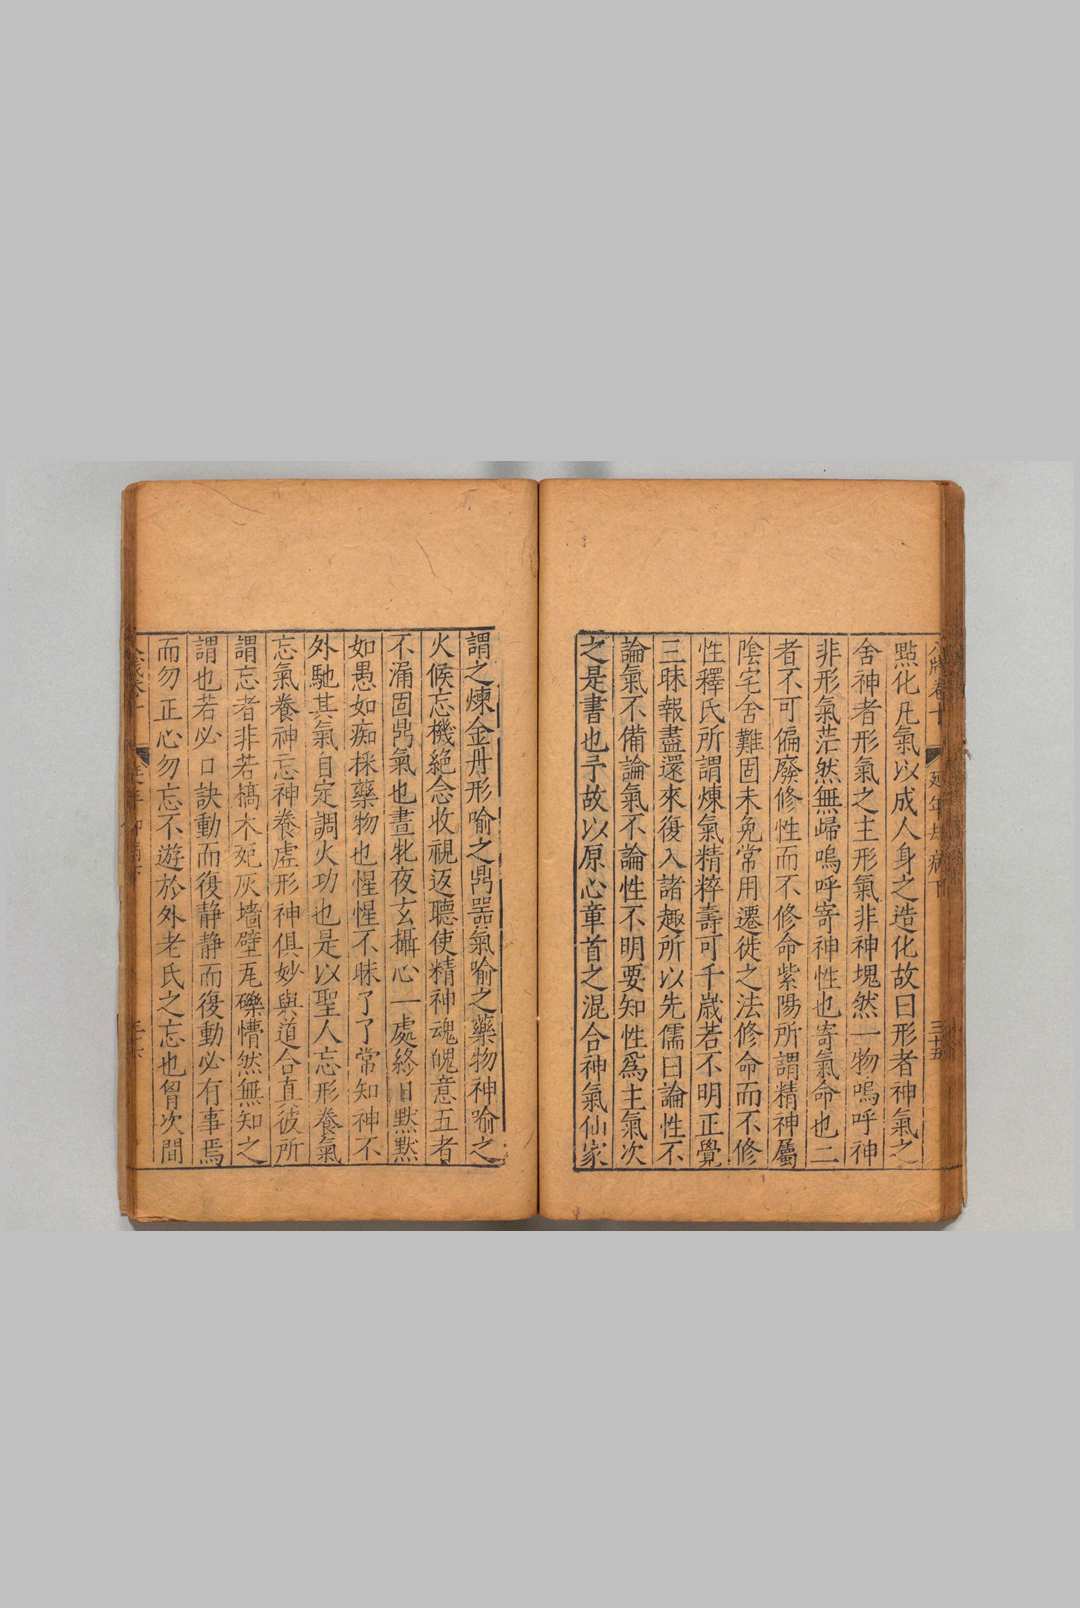 點化凡氣以成人身之造化故曰形者神氣之
舍神者形氣之主形氣非神塊然一物嗚呼神
非形氣茫然無歸嗚呼寄神性也寄氣命也二
者不可偏廢修性而不修命紫陽所謂精神屬
陰宅舍難固未免常用遷徙之法修命而不修
性釋氏所謂煉氣精粹壽可千歲若不明正覺
三昧報盡還來復入諸趣所以先儒曰論性不
論氣不備論氣不論性不明要知性爲主氣次
之是書也予故以原心章首之混合神氣仙家
謂之煉金丹形喻之鼎器氣喻之藥物神喻之
火候忘機絕念收視返聽使精神魂魄意五者
不漏固鼎氣也晝牝夜玄攝心一處終日默默
如愚如痴採藥物也惺惺不昧了了常知神不
外馳其氣自定調火功也是以聖人忘形養氣
忘氣養神忘神養虛形神俱妙與道合真彼所
謂忘者非若槁木死灰墻壁瓦礫懵然無知之
謂也若必口訣動而復静静而復動必有事焉
而勿正心勿忘不遊於外老氏之忘也胷次間
卷十
延年却病下
三十五